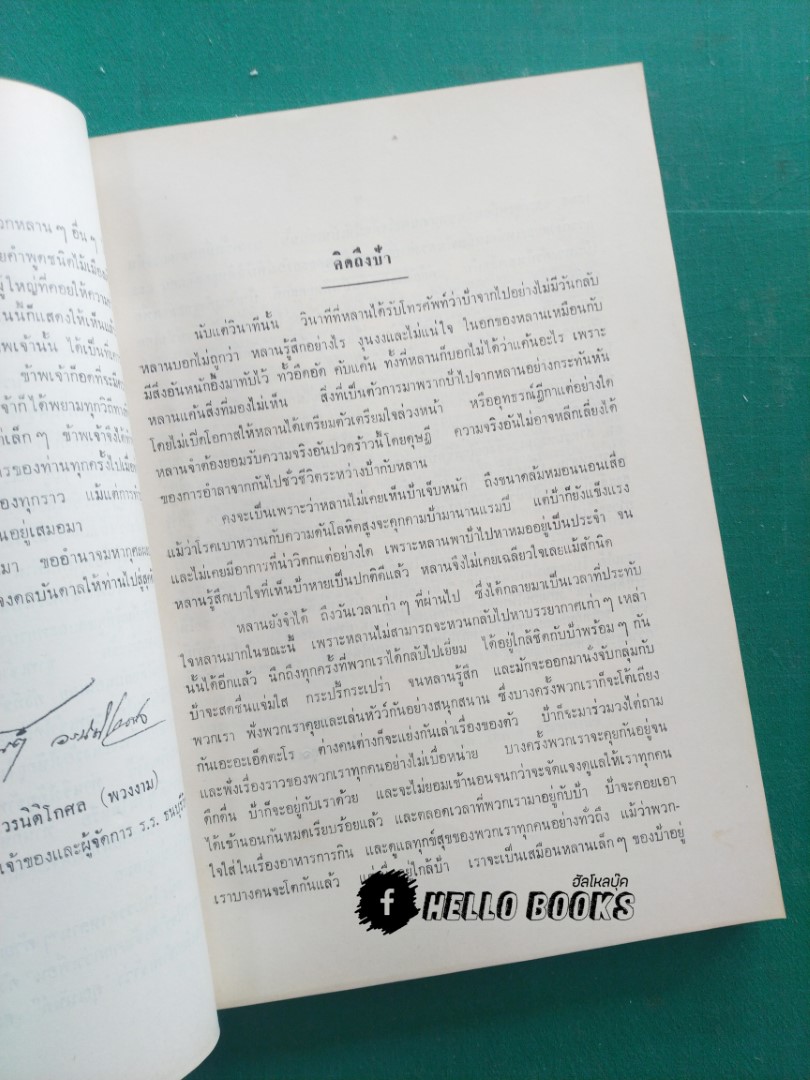 วกหลาน ๆ อื่น ๆ
ยคำพูดชนิดไม้เมือง
ผู้ใหญ่ที่คอยให้ความ
นนี้ก็แสดงให้เห็นแล้ว
พเจ้านั้น ได้เป็นที่
ข้าพเจ้าก็อดที่จะมี
จ้าก็ได้พยามทุกวิถีทาง
ก่เล็ก ๆ ข้าพเจ้าจึงได้
ารของท่านทุกครั้งไปเมื่อ
องทุกราว แม้แต่การ
นอยู่เสมอมา
มา ขออำนาจมหากุศล
งดลบันดาลให้ท่านไปสู่สุคติ
วรนิติโกศล (พวงงาม)
เจ้าของและผู้จัดการ ร.ร. ธนบุรี
คิดถึงป้า
นับแต่วินาทีนั้น วินาทีที่หลานได้รับโทรศัพท์ว่าป้าจากไปอย่างไม่มีวันกลับ
หลานบอกไม่ถูกว่า หลานรู้สึกอย่างไร งุนงงและไม่แน่ใจ ในอกของหลานเหมือนกับ
มีสิ่งอันหนักอึ้งมาทับไว้ ทั้งอึดอัด คับแค้น ทั้งที่หลานก็บอกไม่ได้ว่าแค้นอะไร เพราะ
หลานแค้นสิ่งที่มองไม่เห็น สิ่งที่เป็นตัวการมาพรากป้าไปจากหลานอย่างกระทันหัน
โดยไม่เปิดโอกาสให้หลานได้เตรียมตัวเตรียมใจล่วงหน้า หรืออุทธรณ์ฎีกาแต่อย่างใด
หลานจำต้องยอมรับความจริงอันปวดร้าวนี้โดยดุษฎี ความจริงอันไม่อาจหลีกเลี่ยงได้
ของการอำลาจากกันไปชั่วชีวิตระหว่างป้ากับหลาน
คงจะเป็นเพราะว่าหลานไม่เคยเห็นป้าเจ็บหนัก ถึงขนาดล้มหมอนนอนเสื่อ
แม้ว่าโรคเบาหวานกับความดันโลหิตสูงจะคุกคามป้ามานานแรมปี แต่ป้าก็ยังแข็งแรง
และไม่เคยมีอาการที่น่าวิตกแต่อย่างใด เพราะหลานพาป้าไปหาหมออยู่เป็นประจำ จน
หลานรู้สึกเบาใจที่เห็นป้าหายเป็นปกติดีแล้ว หลานจึงไม่เคยเฉลียวใจเลยแม้สักนิด
หลานยังจำได้ ถึงวันเวลาเก่า ๆ ที่ผ่านไป ซึ่งได้กลายมาเป็นเวลาที่ประทับ
ใจหลานมากในขณะนี้ เพราะหลานไม่สามารถจะหวนกลับไปหาบรรยากาศเก่า ๆ เหล่า
นั้นได้อีกแล้ว นึกถึงทุกครั้งที่พวกเราได้กลับไปเยี่ยม ได้อยู่ใกล้ชิดกับป้าพร้อม ๆ กัน
ป้าจะสดชื่นแจ่มใส กระปรี้กระเปร่า จนหลานรู้สึก และมักจะออกมานั่งจับกลุ่มกับ
พวกเรา ฟังพวกเราคุยและเล่นหัวว์กันอย่างสนุกสนาน ซึ่งบางครั้งพวกเราก็จะโต้เถียง
กันเอะอะเอ็ดตะโร ต่างคนต่างก็จะแย่งกันเล่าเรื่องของตัว ป้าก็จะมาร่วมวงไต่ถาม
และฟังเรื่องราวของพวกเราทุกคนอย่างไม่เบื่อหน่าย บางครั้งพวกเราจะคุยกันอยู่จน
ดึกดื่น ป้าก็จะอยู่กับเราด้วย และจะไม่ยอมเข้านอนจนกว่าจะจัดแจงดูแลให้เราทุกคน
ได้เข้านอนกันหมดเรียบร้อยแล้ว และตลอดเวลาที่พวกเรามาอยู่กับป้า ป้าจะคอยเอา
ใจใส่ในเรื่องอาหารการกิน และดูแลทุกข์สุขของพวกเราทุกคนอย่างทั่วถึง แม้ว่าพวก-
เราบางคนจะโตกันแล้ว อยู่ใกล้ป้า เราจะเป็นเสมือนหลานเล็ก ๆ ของป้าอยู่
ฮัลโหลบุ๊ค
f HELLO BOOKS